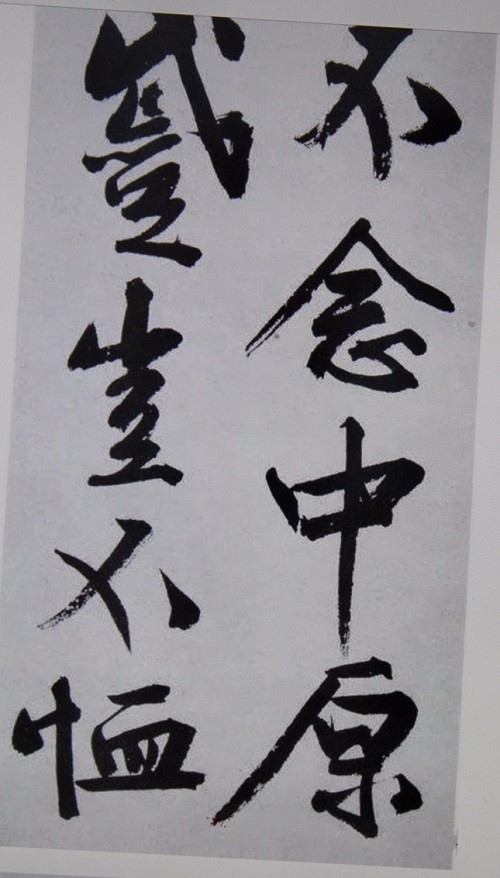 不念中原
蹙豈不恤